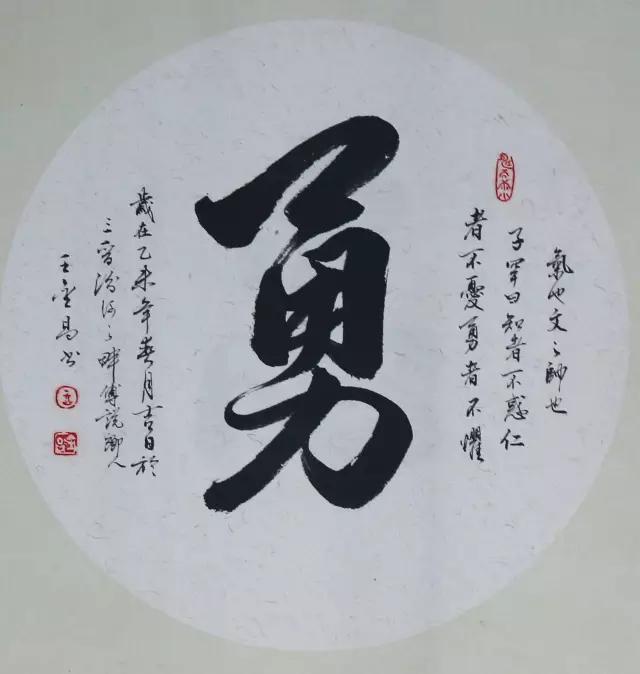 氣也文之帥也
子罕曰知者不惑仁
者不憂勇者不懼
勇
歲在乙未年春月吉日於
三晉汾河之畔傅說鄉人
王